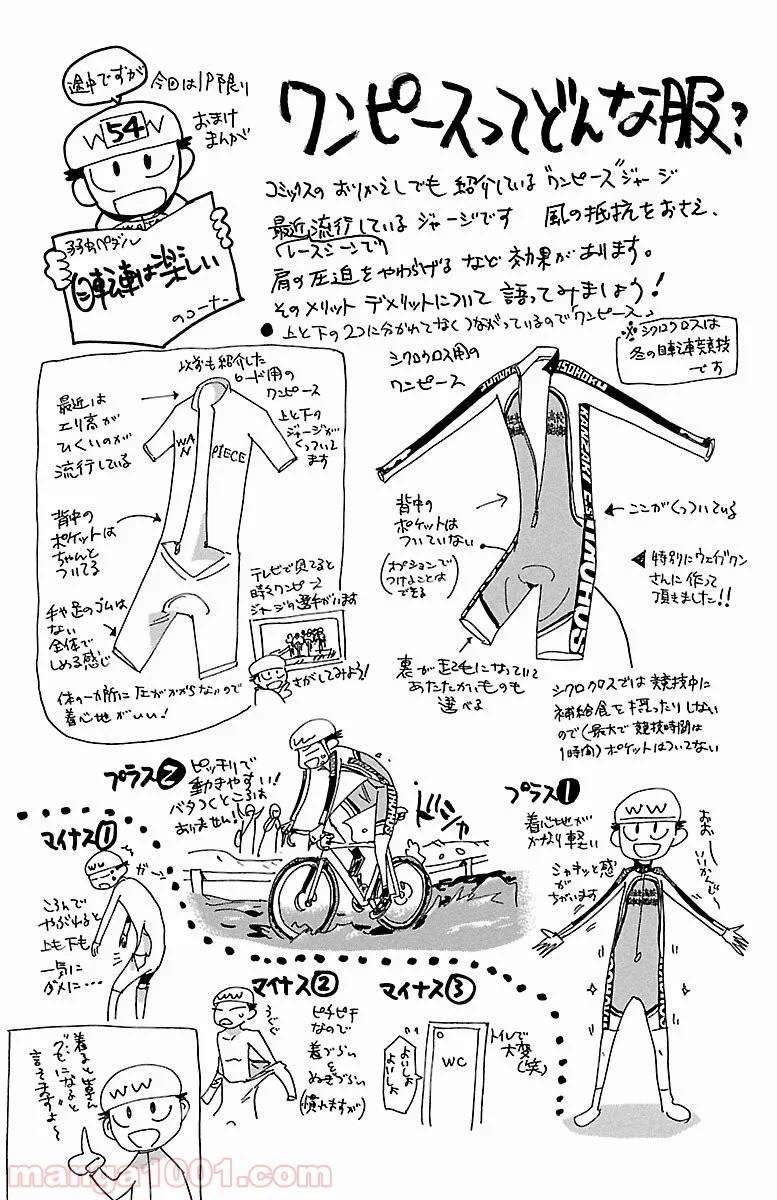 途中ですが
今回は1P限り
おまけ
まんが
W 54 W
弱虫ペダル
自転車は楽しい
のコーナー
ワンピースってどんな服?
コミックスのおりかえしでも紹介している"ワンピース"ジャージ
最近流行しているジャージです 風の抵抗をおさえ、
(レースシーンで)
肩の圧迫をやわらげるなど効果があります。
そのメリットデメリットについて語ってみましょう!
●上と下の2つに分かれてなくつながっているので「ワンピース」
※シクロクロスは
冬の自転車競技
です
以前も紹介した
ロード用の
ワンピース
上と下の
ジャージが
くっついて
ます
最近は
エリ高が
ひくいのが
流行している
WAN
PIECE
背中の
ポケットは
ちゃんと
ついてる
手や足のゴムは
ない
全体で
しめる感じ
テレビで見てると
時々ワンピース
ジャージの選手がいます
さがしてみよう!
体の一カ所に圧がかからないので
着心地がいい!
シクロクロス用の
ワンピース
JUNIOR
SOHOKU
背中の
ポケットは
ついていない
(オプションで
つけることは
できる)
ここがくっついている
特別にウェイブワン
さんに作って
頂きました!!
裏が起毛になっていて
あたたかいものも
選べる
シクロクロスでは競技中に
補給食を摂ったりしない
ので(最大で競技時間は
1時間)ポケットはついてない
プラス2
ピッチリで
動きやすい!
バタつくところは
ありません!
ドシャ
プラス1
着心地が
かなり軽い
シャキッと感
が
ちがいます
WW
おお〜
いいかんじ〜
マイナス1
ガーッ
ころんで
やぶれると
上も下も
一気に
ダメに…
マイナス2
WW
うぐぐ
ピチピチ
なので
着づらい
&
ぬぎづらい
(慣れますが)
マイナス3
よいしょ
よいしょ
WC
トイレで
大変
(笑)
WW
manga1001.com